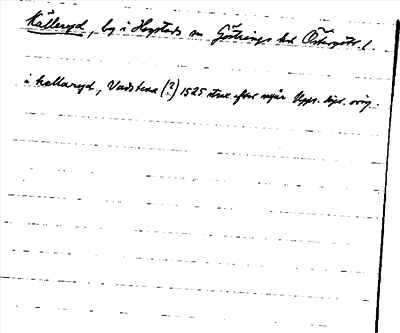 Källeryd, by i Hogstads sn Göstrings hd Östergötl. l.
i kallaryd, Vadstena (?) 1525 strax efter nyår Upps. dipl. orig.